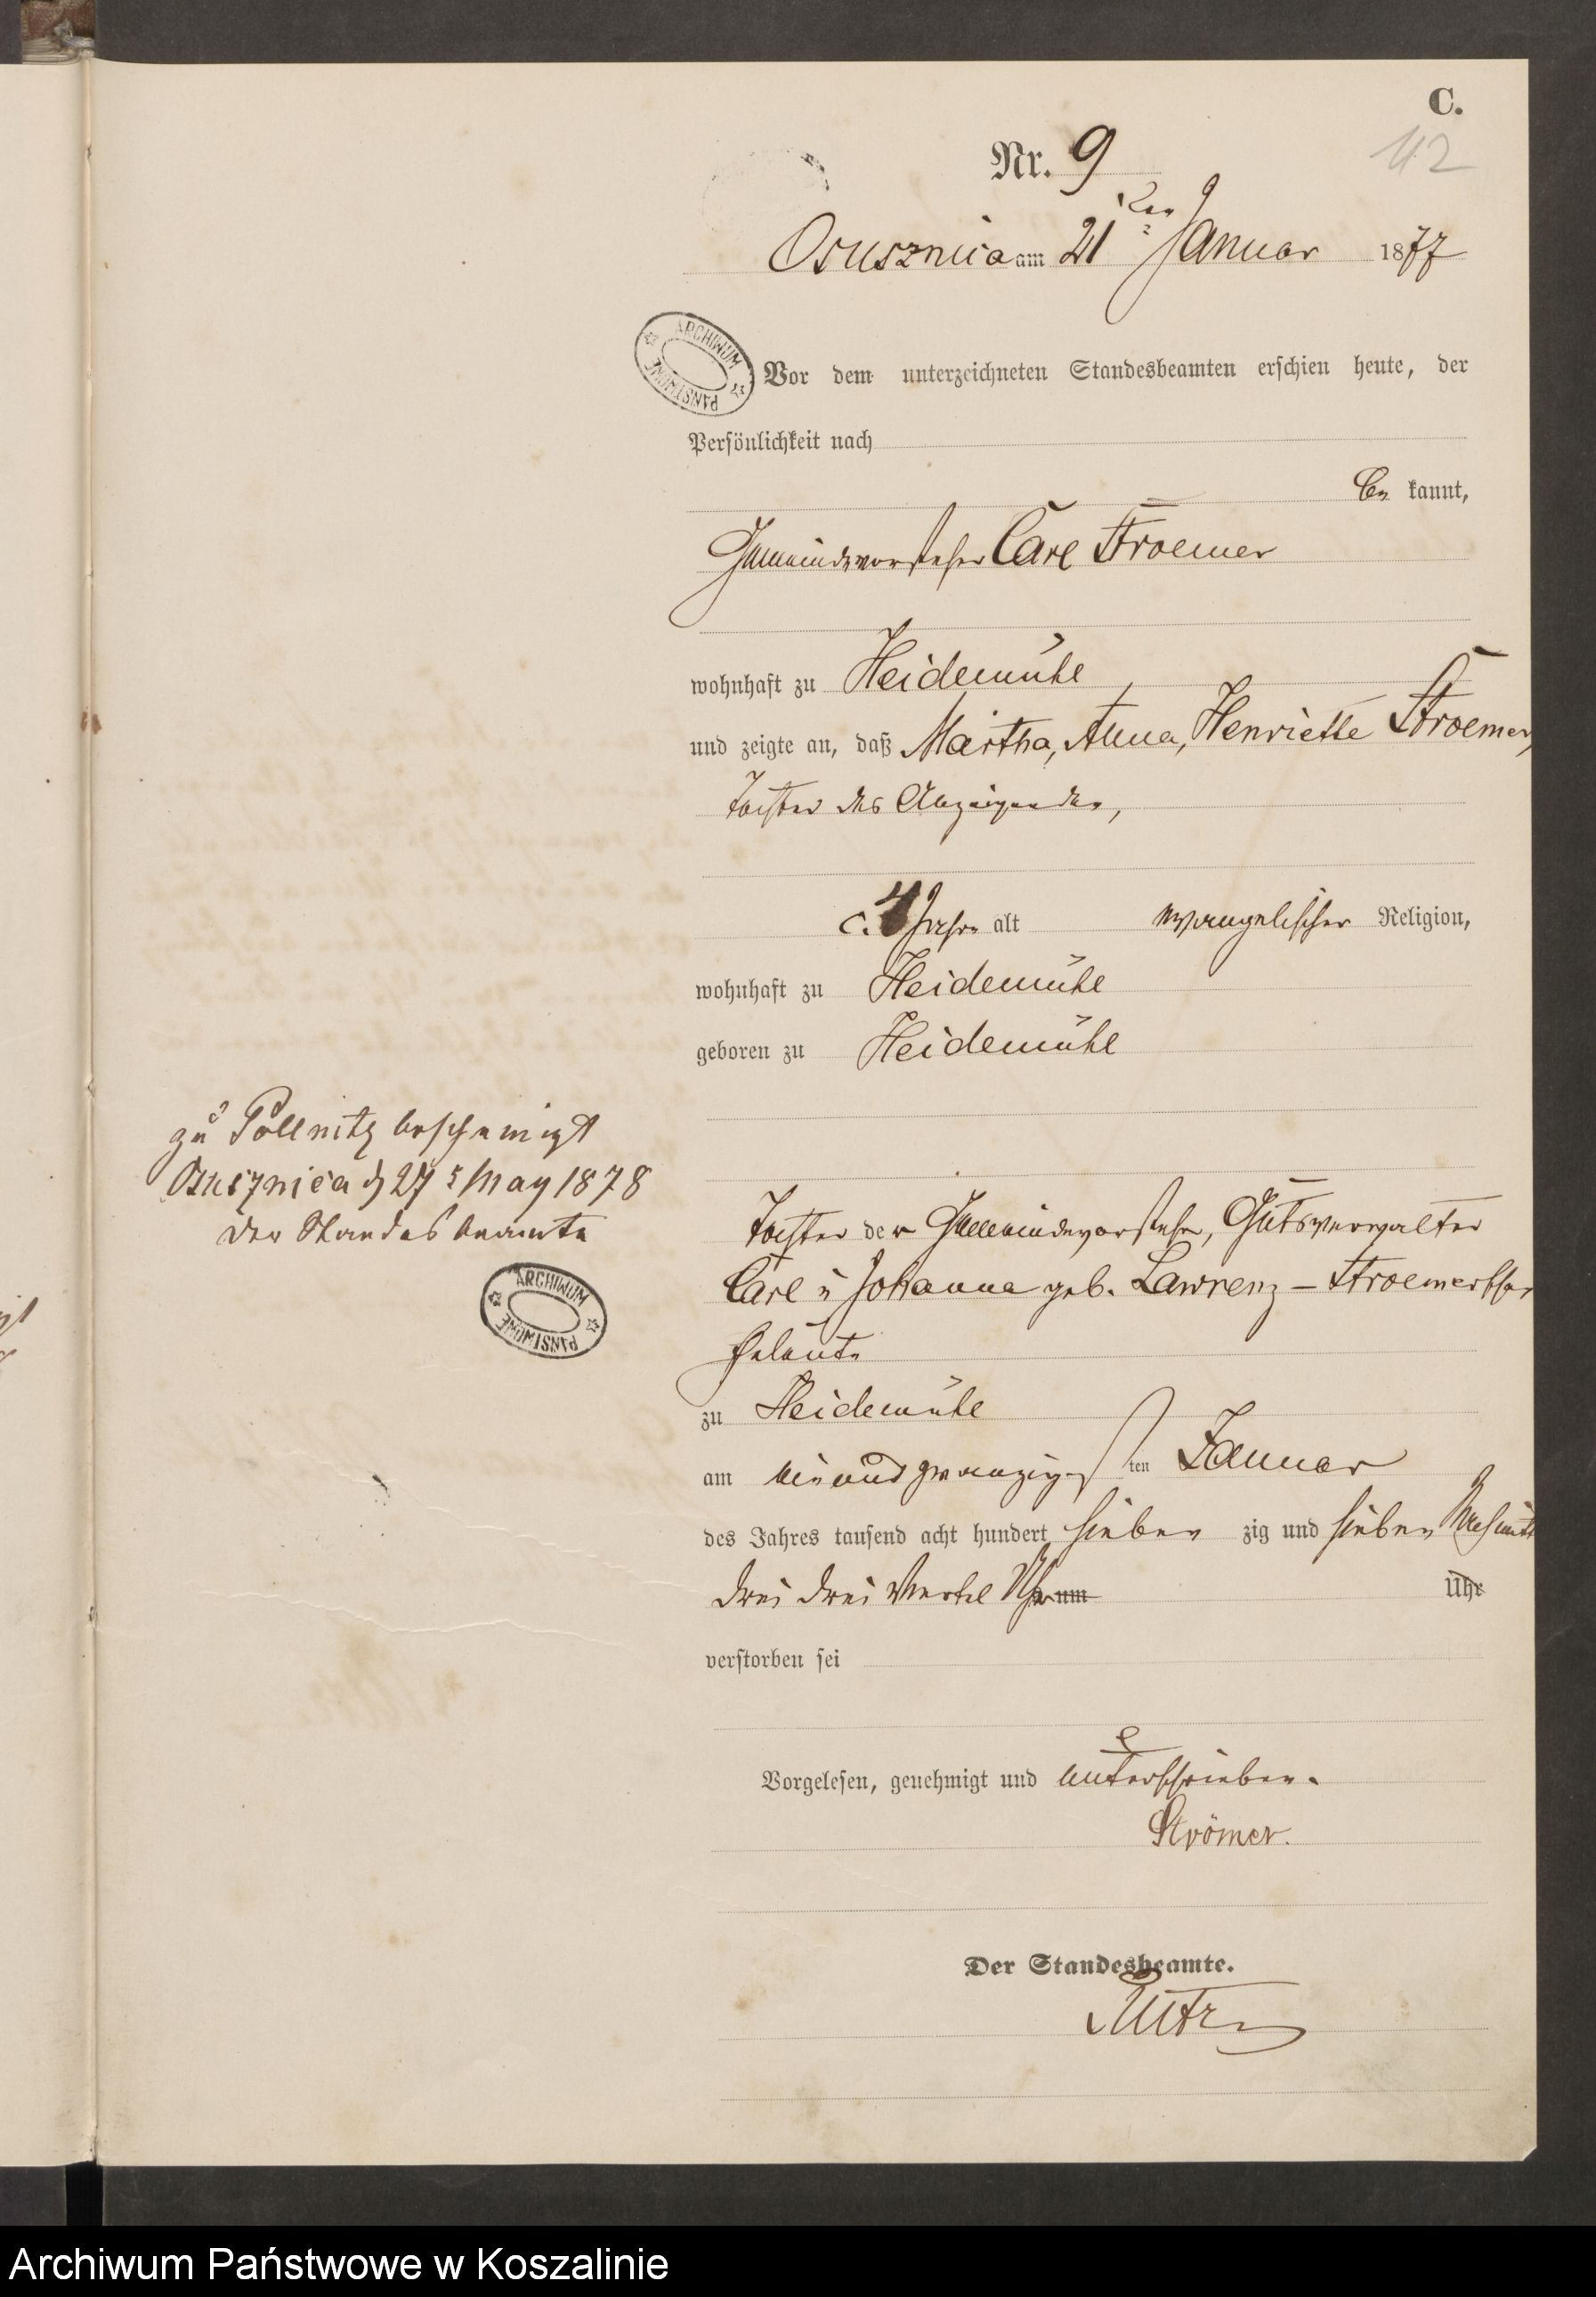 C.
112
Nr. 9
Osusznica am 21ten Januar 1877
ARCHIWUM PAŃSTWOWE
Vor dem unterzeichneten Standesbeamten erschien heute, der
Persönlichkeit nach
be kannt,
Gemeindevorsteher Carl Stroemer
wohnhaft zu Heidemühl
und zeigte an, daß Martha, Anna, Henriette Stroemer,
Tochter des Anzeigenden,
c. 4 Jahre alt evangelischer Religion,
wohnhaft zu Heidemühl
geboren zu Heidemühl
zu Pollnitz bescheinigt
Osusznica d 27 May 1878
Der Standesbeamte
ARCHIWUM PAŃSTWOWE
Tochter der Gemeindevorsteher, Gutsverwalter
Carl u Johanna geb. Lawrenz – Stroemerschen
Eheleute
zu Heidemühl
am einundzwanzigs ten Januar
des Jahres tausend acht hundert sieben zig und sieben
drei drei Viertel Uhr um Uhr
verstorben sei
Vorgelesen, genehmigt und unterschrieben.
Strömer.
Der Standesbeamte.
Archiwum Państwowe w Koszalinie